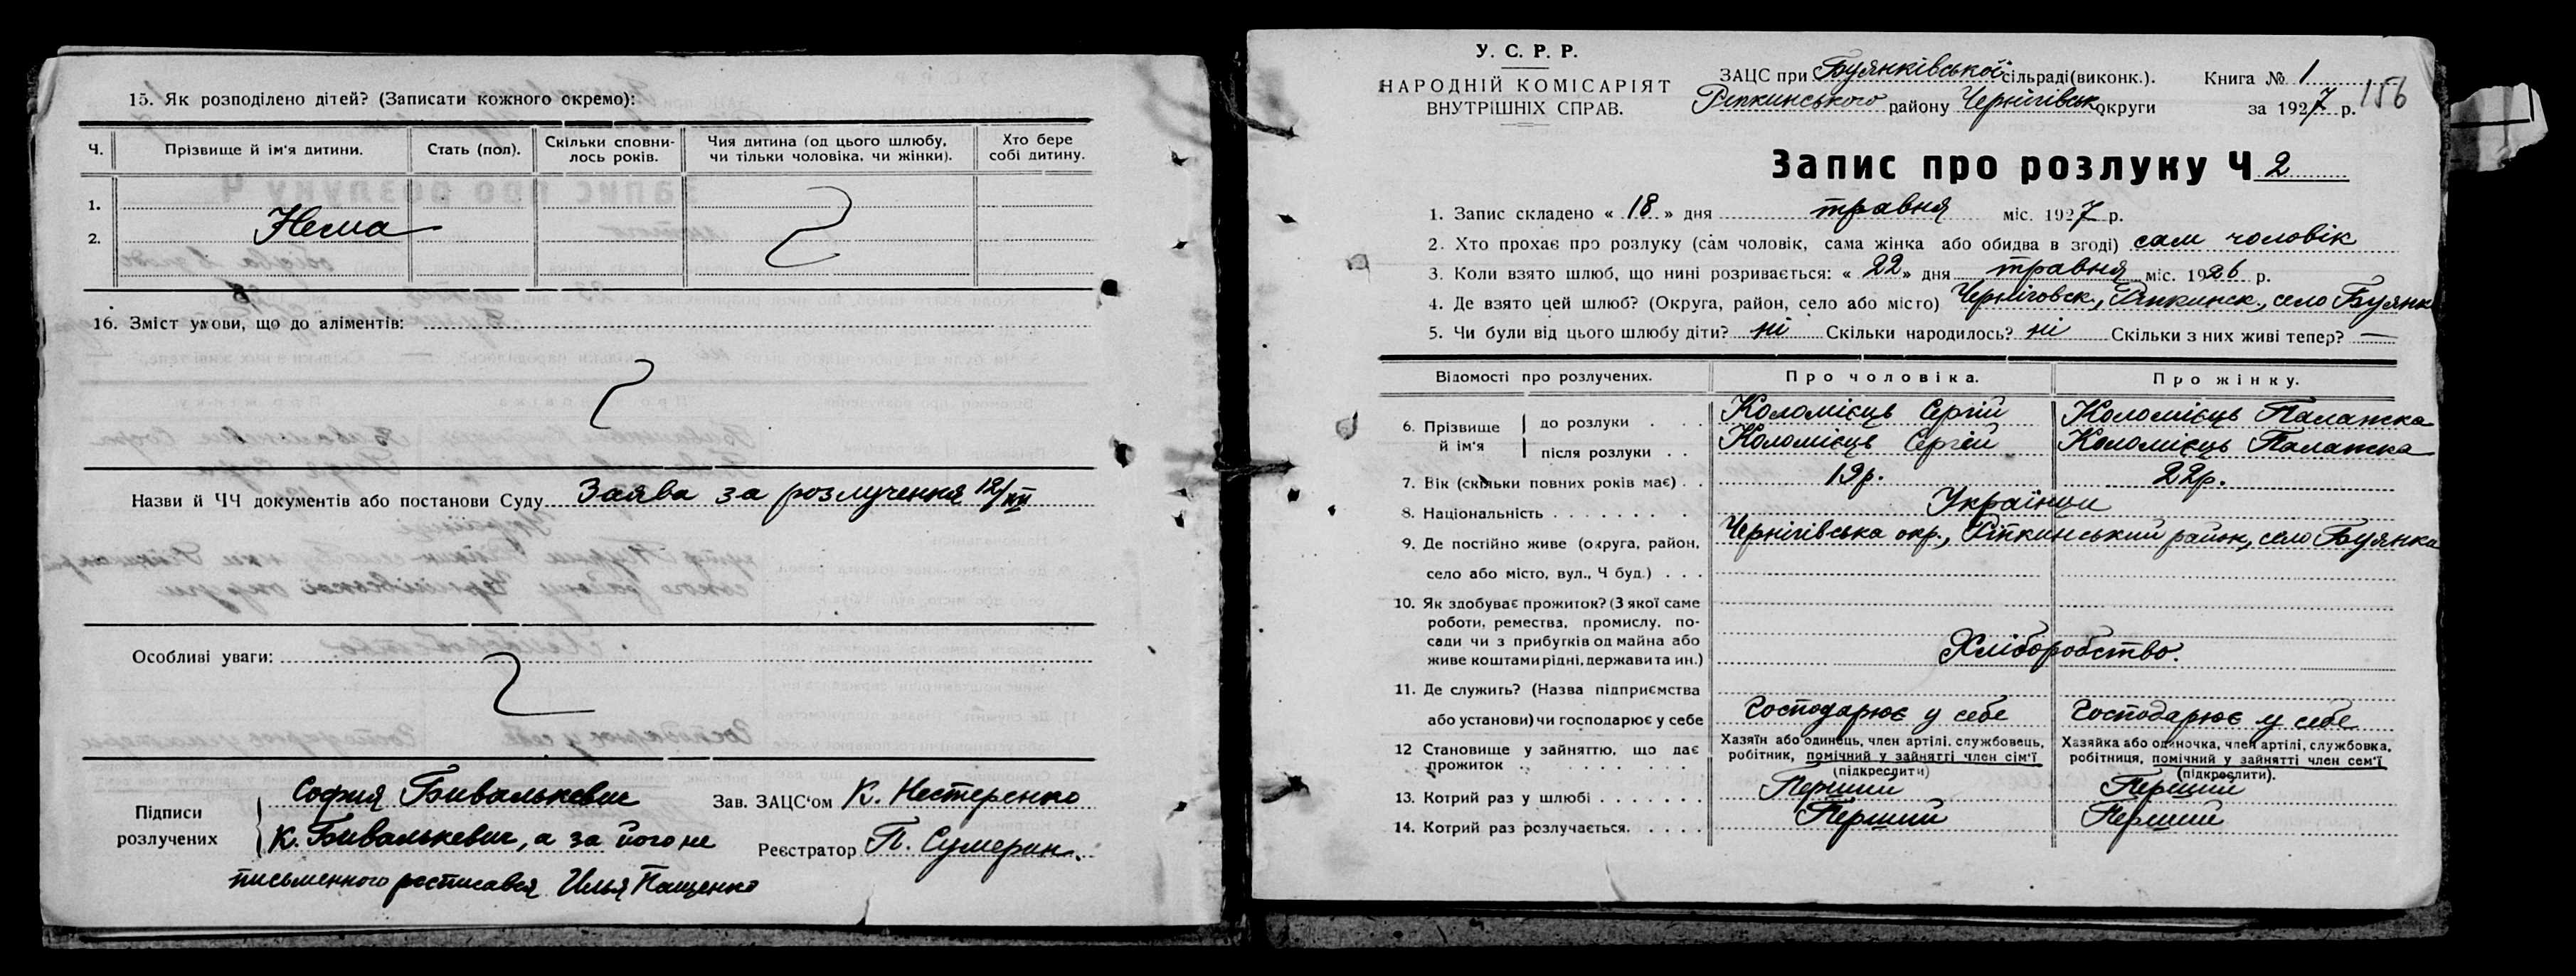 15. Як розподілено дітей? (Записати кожного окремо):
Ч. Прізвище й ім'я дитини. Стать (пол). Скільки сповнилось років. Чия дитина (од цього шлюбу, чи тільки чоловіка, чи жінки). Хто бере собі дитину.
1.
Нема
2.
16. Зміст умови, що до аліментів:
Назви й ЧЧ документів або постанови Суду Заява за розлучення 12/XII
Особливі уваги:
Підписи розлучених
София Бивалькевич
К. Бивалькевич, а за його не
письменного росписався Илья Пащенко
Зав. ЗАЦС'ом К. Нестеренко
Реєстратор П. Сумерин.
У. С. Р. Р.
НАРОДНІЙ КОМІСАРІЯТ
ВНУТРІШНІХ СПРАВ.
ЗАЦС при Буянківської сільраді (виконк.).
Ріпкинського району Чернігівськ округи
Книга № 1
за 1927 р.
156
Запис про розлуку Ч 2
1. Запис складено « 18 » дня травня міс. 1927 р.
2. Хто прохає про розлуку (сам чоловік, сама жінка або обидва в згоді) сам чоловік
3. Коли взято шлюб, що нині розривається: « 22 » дня травня міс. 1926 р.
4. Де взято цей шлюб? (Округа, район, село або місто) Черніговск., Ріпкинск., село Буянк
5. Чи були від цього шлюбу діти? ні Скільки народилось? ні Скільки з них живі тепер? —
Відомості про розлучених. Про чоловіка. Про жінку.
6. Прізвище й ім'я до розлуки . . . Коломієць Сергій Коломієць Палажка
після розлуки . . Коломієць Сергій Коломиєць Палажка
7. Вік (скільки повних років має) . . 19р. 22р.
8. Національність . . . . . . . . Українци
9. Де постійно живе (округа, район, Чернігівська окр., Ріпкинський район, село Буянка
село або місто, вул., Ч буд.) . . .
10. Як здобуває прожиток? (З якої саме
роботи, ремества, промислу, по-
сади чи з прибутків од майна або
живе коштами рідні, держави та ин.) Хліборобство.
11. Де служить? (Назва підприємства
або установи) чи господарює у себе Господарює у себе Господарює у себе
12 Становище у зайняттю, що дає
прожиток . . . . . . . . .
Хазяїн або одинець, член артілі, службовець,
робітник, помічний у зайнятті член сім'ї
(підкреслити)
Хазяйка або одиночка, член артілі, службовка,
робітниця, помічний у зайнятті член сем'ї
(підкреслити).
13. Котрий раз у шлюбі . . . . . . . Перший Перший
14. Котрий раз розлучається. . . . . Перший Перший